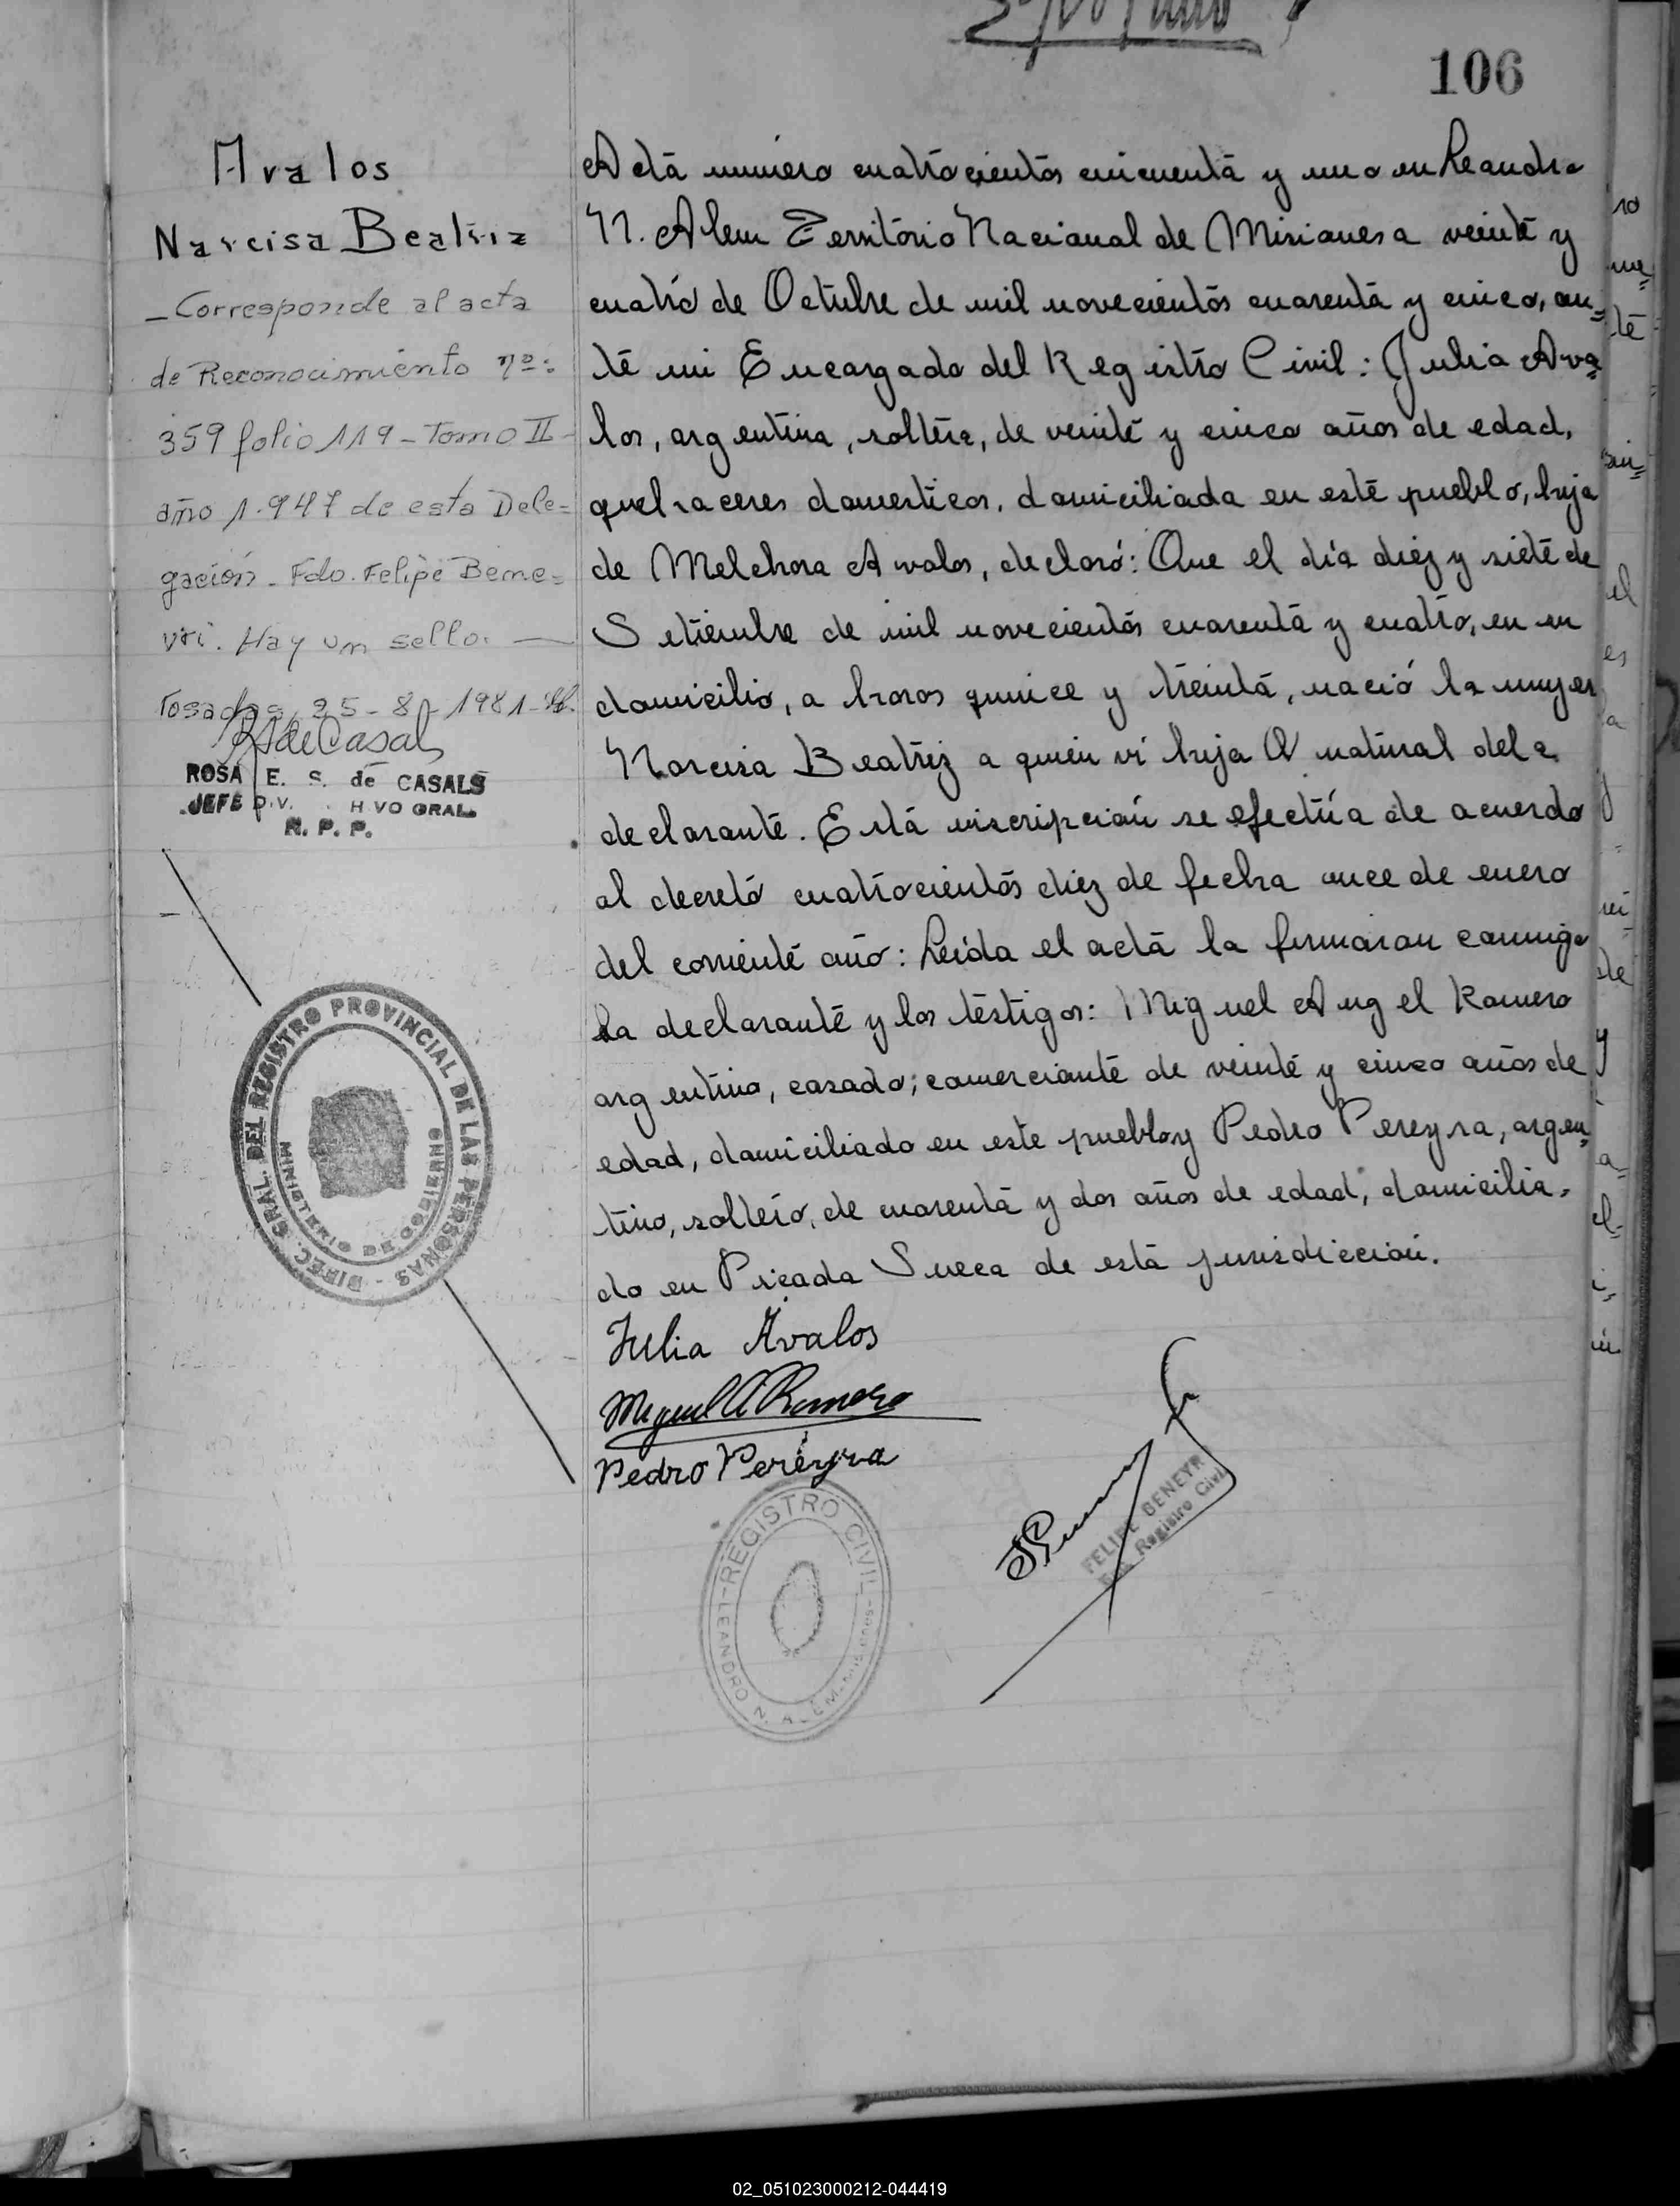 106
Avalos
Narcisa Beatriz
_Corresponde al acta
de Reconocimiento nº:
359 folio 119-Tomo II-
año 1.947 de esta Dele=
gación_ Fdo. Felipe Bene=
yri. Hay un sello. —
Posadas, 25-8-1981-
RSdeCasals
ROSA E. S. de CASALS
JEFE DIV. HIVO GRAL.
R. P. P.
DIREC. GRAL. DEL REGISTRO PROVINCIAL DE LAS PERSONAS -
MINISTERIO DE GOBIERNO
Acta numero cuatrocientos cincuenta y uno en Leandro
N. Alem Territorio Nacional de Misiones a veinte y
cuatro de Octubre de mil novecientos cuarenta y cinco, an=
te mi Encargado del Registro Civil: Julia Ava=
los, argentina, soltera, de veinte y cinco años de edad,
quehaceres domesticos, domiciliada en este pueblo, hija
de Melchora Avalos, declaró: Que el día diez y siete de
Setiembre de mil novecientos cuarenta y cuatro, en su
domicilio, a horas quince y treinta, nació la mujer
Narcisa Beatriz a quien vi hija natural de la
declarante. Esta inscripción se efectúa de acuerdo
al decreto cuatrocientos diez de fecha once de enero
del corriente año: Leida el acta la firmaran conmigo
la declarante y los testigos: Miguel Angel Romero
argentino, casado; comerciante de veinte y cinco años de
edad, domiciliado en este pueblo y Pedro Pereyra, argen=
tino, soltero, de cuarenta y dos años de edad, domicilia=
do en Picada Sueca de esta jurisdiccion.
Julia Avalos
Miguel A Romero
Pedro Pereyra
REGISTRO CIVIL
LEANDRO N. ALEM-Misiones-
FELIPE BENEYR
Enc. Registro Civil
02_051023000212-044419